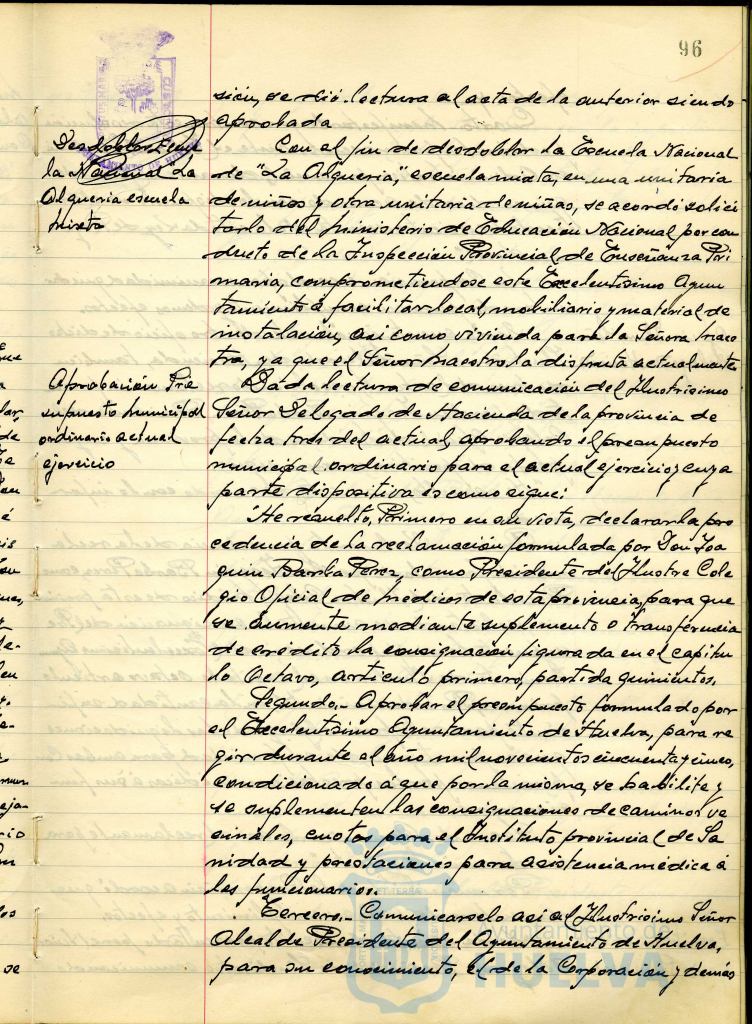 96
sión, se dió lectura al acta de la anterior siendo
aprobada
Desdoblar Escue
la Nacional La
Alqueria escuela
mixta
Con el fin de desdoblar la Escuela Nacional
de "La Alqueria," escuela mixta, en una unitaria
de niños y otra unitaria de niñas, se acordó solici
tarlo del Ministerio de Educación Nacional por con
ducto de la Inspección Provincial de Enseñanza Pri
maria, comprometiendose este Excelentisimo Ayun
tamiento á facilitar local, mobiliario y material de
instalación, asi como vivienda para la Señora maes
tra, ya que el Señor maestro la disfruta actualmente
Aprobación Pre
supuesto municipal
ordinario actual
ejercicio
Dada lectura de comunicación del Ilustrisimo
Señor Delegado de Hacienda de la provincia de
fecha tres del actual, aprobando el presupuesto
municipal ordinario para el actual ejercicio y cuya
parte dispositiva es como sigue:
"He resuelto, Primero en su vista, declarar la pro
cedencia de la reclamación formulada por Don Joa
quin Barba Perez, como Presidente del Ilustre Cole
gio Oficial de médicos de esta provincia, para que
se aumente mediante suplemento o transferencia
de crédito la consignación figurada en el capitu
lo Octavo, articulo primero, partida quinientos.
Segundo.- Aprobar el presupuesto formulado por
el Excelentisimo Ayuntamiento de Huelva, para re
gir durante el año mil novecientos cincuenta y cinco,
condicionado á que por la misma, se habilite y
se suplementen las consignaciones de caminos ve
cinales, cuotas para el Instituto provincial de Sa
nidad y prestaciones para asistencia médica á
los funcionarios.
Tercero.- Comunicarselo asi al Ilustrisimo Señor
Alcalde Presidente del Ayuntamiento de Huelva,
para su conocimiento, el de la Corporación y demás
Ayuntamiento de
HUELVA